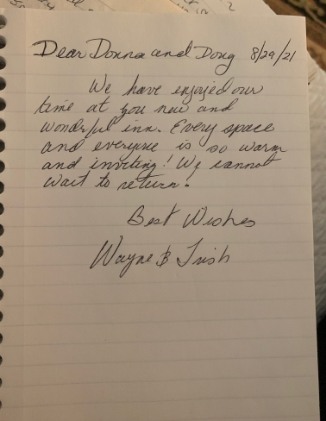 Dear Donna and Doug 8/29/21
We have enjoyed our
time at you new and
wonderful inn. Every space
and everyone is so warm
and inviting! We cannot
wait to return!
Best Wishes
Wayne & Trish